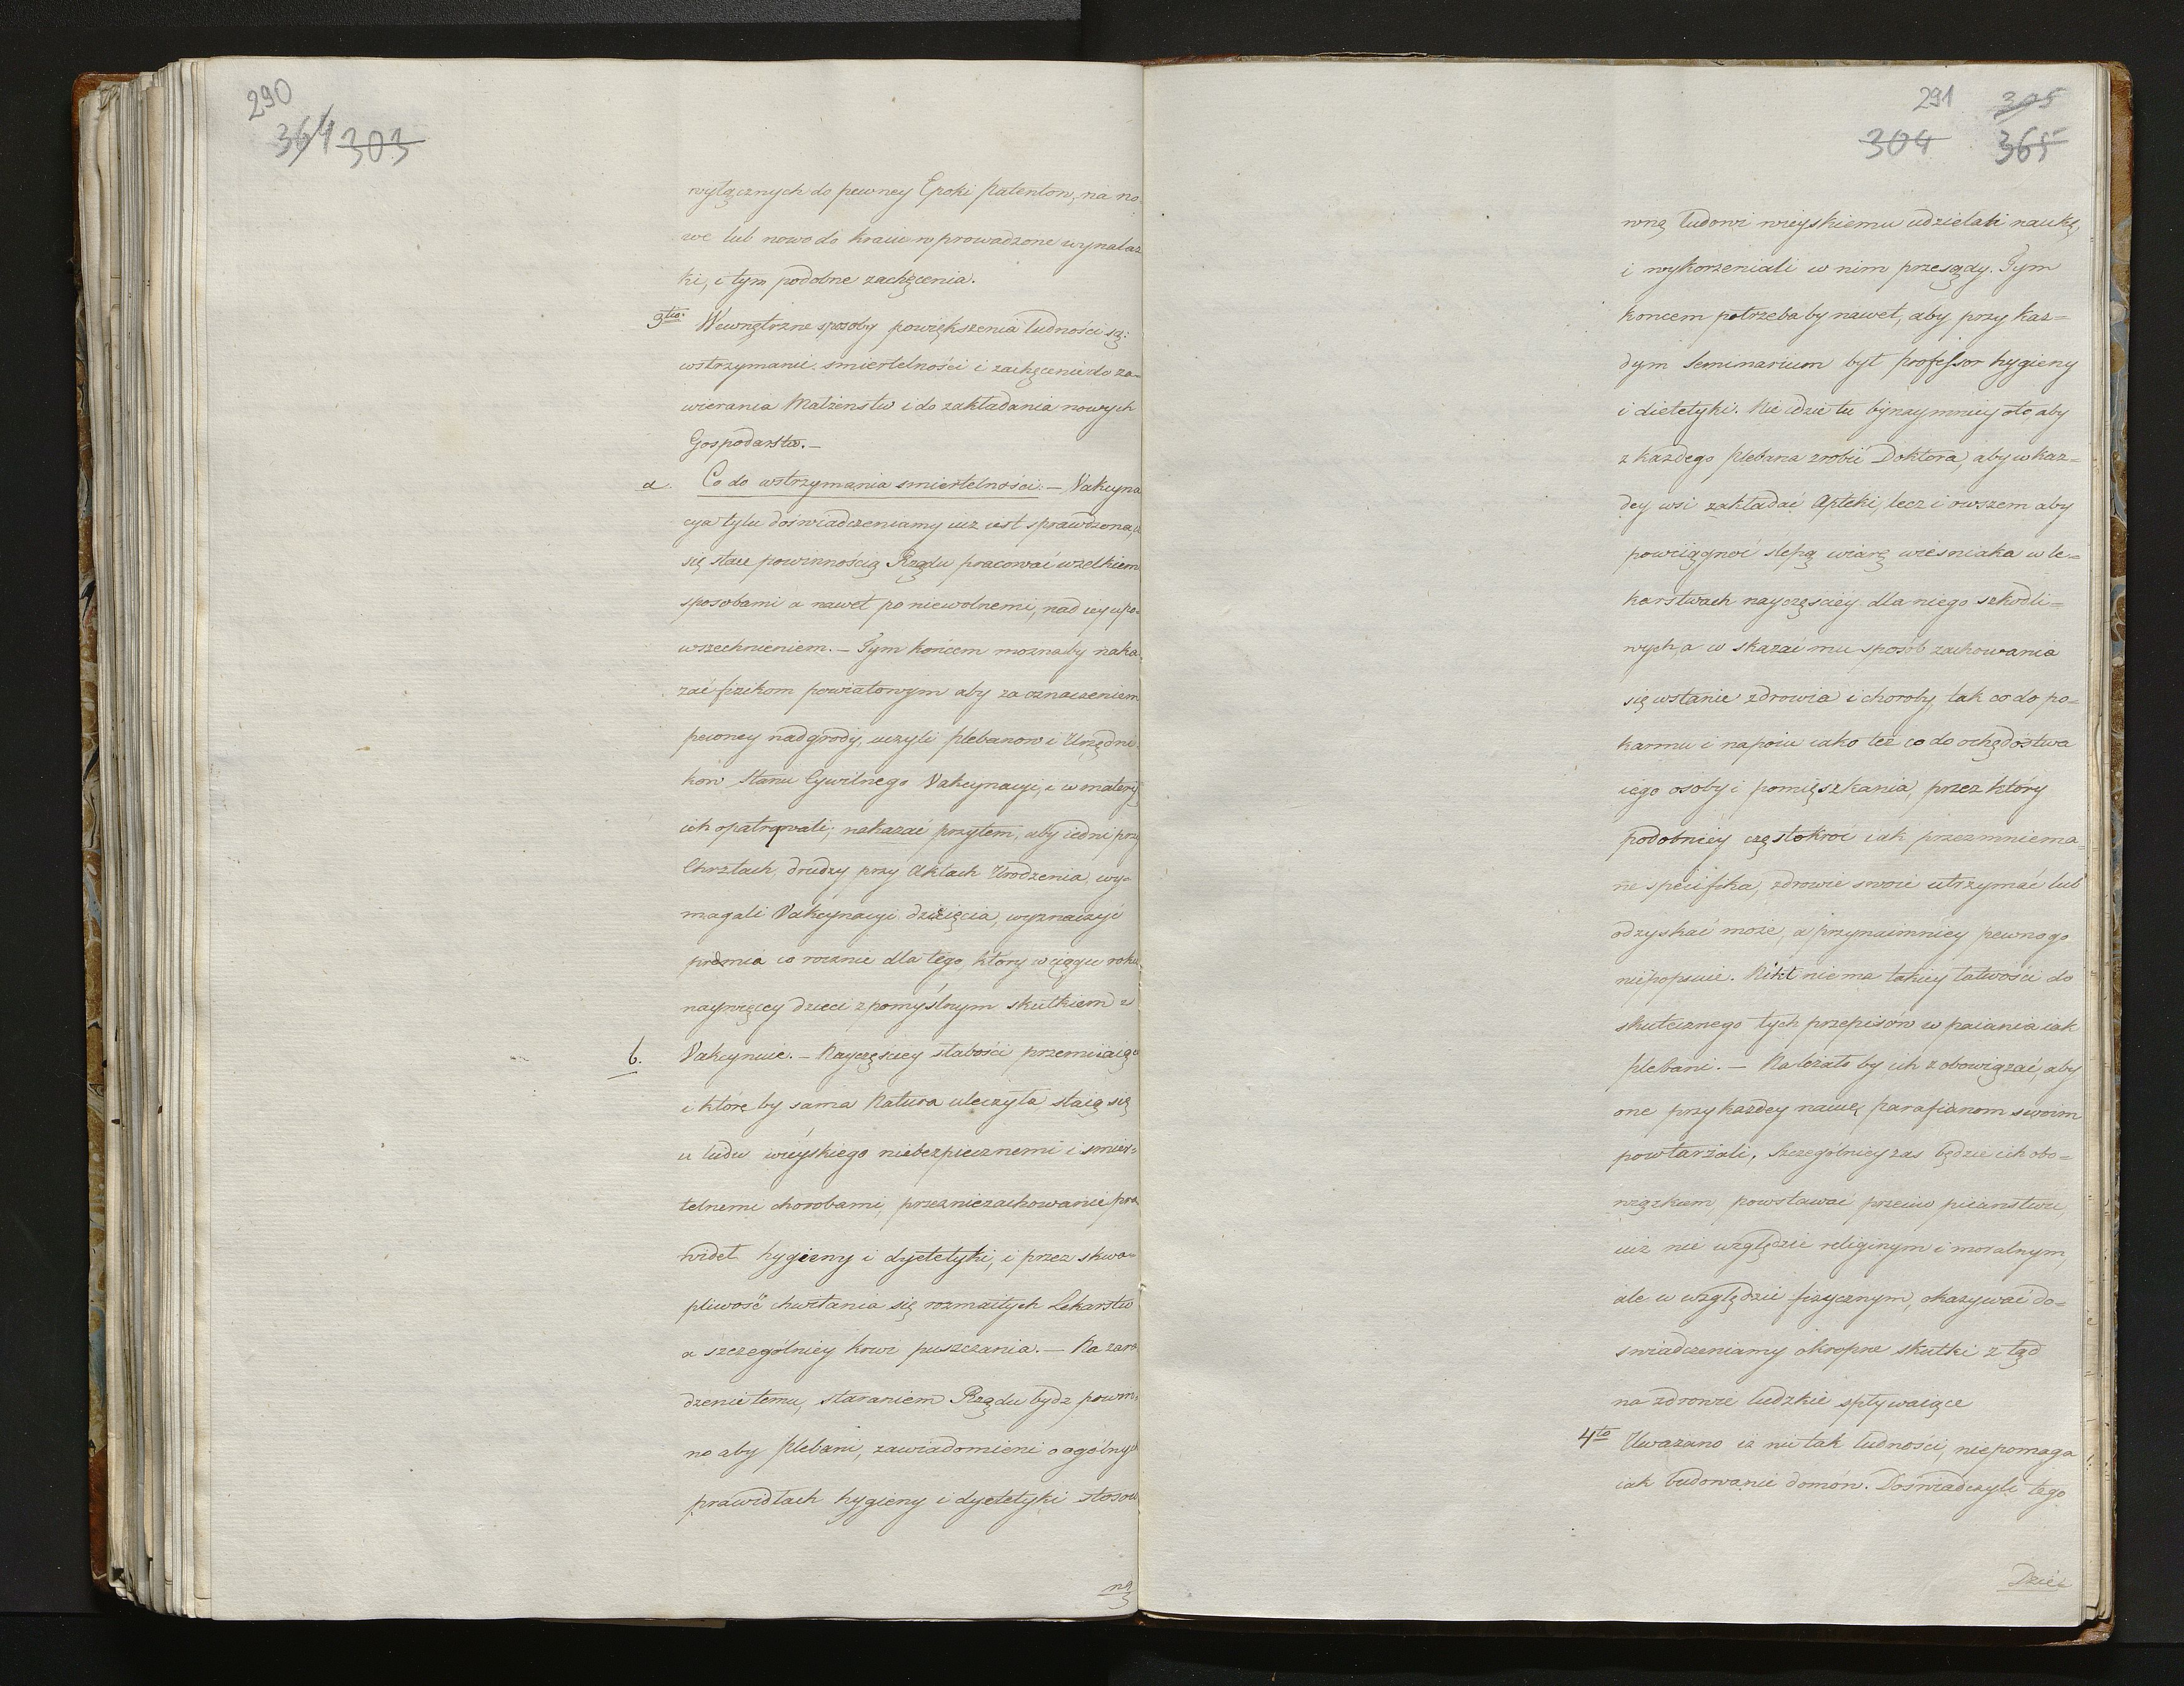 290
364 303
wyłącznych do pewney Epoki Patentow, na no
we lub nowo do kraiu wprowadzone wynalaz
ki, i tym podobne zachęcenia.
3tio. Wewnętrzne sposoby powiększenia ludności są:
wstrzymanie smiertelności i zachęcenie do za-
wierania Małżenstw i do zakładania nowych
Gospodarstw. —
a. Co do wstrzymania smiertelności. — Vakcyna
cya tylu doświadczeniamy iuz iest sprawdzona,
się staie powinnością Rządu pracować wszelkiem
sposobami a nawet poniewolnemi, nad iey upo-
wszechnieniem. — Tym końcem moznaby naka
zać fizikom powiatowym aby za oznaczeniem
pewney nadgrody, uczyli plebanow i Urzędni
kow Stanu Cywilnego Vakcynacyi, i w materyą
ich opatrywali; nakazać przytem, aby iedni przy
Chrztach, drudzy przy Aktach Urodzenia, wy-
magali Vakcynacyi dziecięcia, wyznaczyć
premia co rocznie dla tego, który w ciągu roku
naywięcey dzieci z pomyślnym skutkiem z
b. Vakcynuie. — Nayczęściey słabości przemiiaiące
i które by sama Natura uleczyła staią się
u ludu wieyskiego niebezpiecznemi i smier-
telnemi chorobami, przez niezachowanie pra
wideł hygieny i dyetetyki, i przez skwa-
pliwość chwitania się rozmaitych Lekarstw
a szczególniey krwi puszczania. — Na zara
dzenie temu, staraniem Rządu bydz powin,
no aby Plebani, zawiadomieni o ogólnych
prawidłach hygieny i dyetetyki stosow
ną
291 305
304 365
wną ludowi wieyskiemu udzielali naukę,
i wykorzeniali w nim przesądy. Tym
koncem potrzeba by nawet, aby przy kaz=
dym Seminarium był professor hygieny
i dietetyki. Nie idzie tu bynaymniey oto, aby
z kazdego plebana zrobić Doktora, aby w kaz=
dey wsi zakładać Apteki, lecz i owszem aby
powciągnąć slepą wiarę wieśniaka w le=
karstwach nayczęściey dla niego szkodli=
wych, a w skazać mu sposób zachowania
się wstanie zdrowia i choroby, tak co do po=
karmu i napoiu iako też co do ochędostwa
iego osoby i pomięszkania, przez który
podobniey częstokroć iak przez mniema=
ne specifika, zdrowie swoie utrzymać lub
odzyskać moze, a przynaimniey pewno go
nie popsuie. Nikt nie ma takiey łatwości do
skutecznego tych przepisów w paiania iak
plebani. — Nalezało by ich zobowiązać, aby
one przy kazdey nauce parafianom swoim
powtarzali, Szczególniey zas będzie ich obo=
wiązkiem, powstawać przeciw pieianstwu,
iuż nie względzie religinym i moralnym,
ale w względzie fizycznym, okazywać do=
swiadczeniamy okropne skutki z tąd
na zdrowie ludzkie spływaiące
4to Uwazano iz nie tak ludności, nie pomaga
iak budowanie domów. Doświadczyli tego
Dzie=